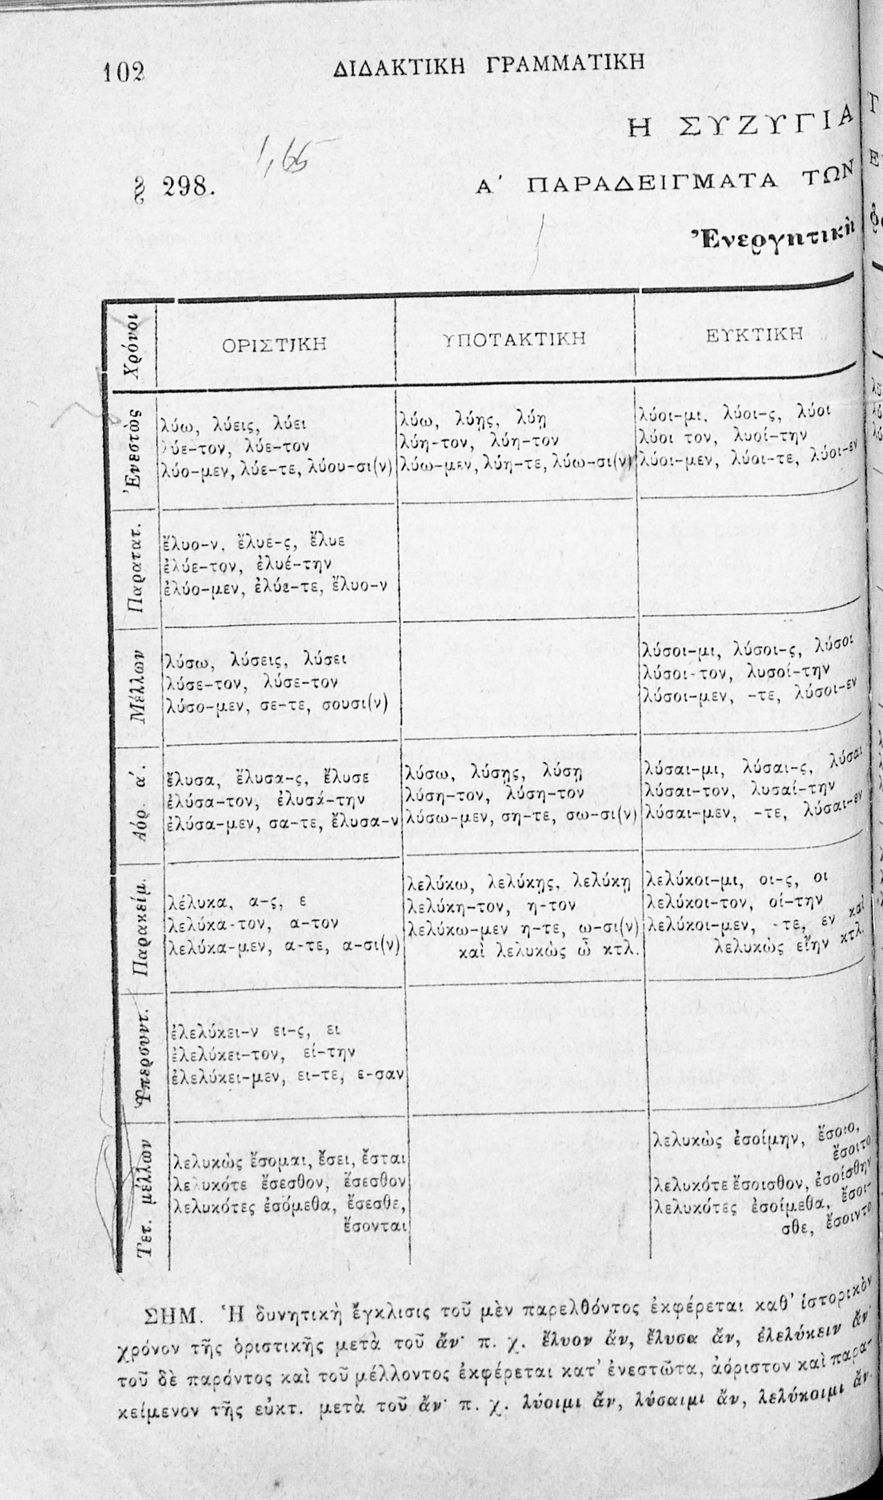 102 ΔΙΔΑΚΤΙΚΗ ΓΡΑΜΜΑΤΙΚΗ
Η ΣΥΖΥΓΙΑ
1,65
§ 298. Α΄ ΠΑΡΑΔΕΙΓΜΑΤΑ ΤΩΝ
Ἐνεργητικὴ
Χρόνοι
ΟΡΙΣΤΙΚΗ
ΥΠΟΤΑΚΤΙΚΗ
ΕΥΚΤΙΚΗ
Ἐνεστὼς
λύω, λύεις, λύει
λύε-τον, λύε-τον
λύο-μεν, λύε-τε, λύου-σι(ν)
λύω, λύῃς, λύῃ
λύη-τον, λύη-τον
λύω-μεν, λύη-τε, λύω-σι(ν)
λύοι-μι, λύοι-ς, λύοι
λύοι τον, λυοί-την
λύοι-μεν, λύοι-τε, λύοι-εν
Παρατατ.
ἔλυο-ν, ἔλυε-ς, ἔλυε
ἐλύε-τον, ἐλυέ-την
ἐλύο-μεν, ἐλύε-τε, ἔλυο-ν
Μέλλων
λύσω, λύσεις, λύσει
λύσε-τον, λύσε-τον
λύσο-μεν, σε-τε, σουσι(ν)
λύσοι-μι, λύσοι-ς, λύσοι
λύσοι-τον, λυσοί-την
λύσοι-μεν, -τε, λύσοι-εν
Ἀόρ. α΄.
ἔλυσα, ἔλυσα-ς, ἔλυσε
ἐλύσα-τον, ἐλυσά-την
ἐλύσα-μεν, σα-τε, ἔλυσα-ν
λύσω, λύσῃς, λύσῃ
λύση-τον, λύση-τον
λύσω-μεν, ση-τε, σω-σι(ν)
λύσαι-μι, λύσαι-ς, λύσαι
λύσαι-τον, λυσαί-την
λύσαι-μεν, -τε, λύσαι-εν
Παρακείμ.
λέλυκα, α-ς, ε
λελύκα-τον, α-τον
λελύκα-μεν, α-τε, α-σι(ν)
λελύκω, λελύκῃς, λελύκῃ
λελύκη-τον, η-τον
λελύκω-μεν η-τε, ω-σι(ν)
καὶ λελυκὼς ὦ κτλ.
λελύκοι-μι, οι-ς, οι
λελύκοι-τον, οί-την
λελύκοι-μεν, -τε, εν καὶ
λελυκὼς εἴην κτλ.
Ὑπερσυντ.
ἐλελύκει-ν ει-ς, ει
ἐλελύκει-τον, εί-την
ἐλελύκει-μεν, ει-τε, ε-σαν
Τετ. μέλλων
λελυκὼς ἔσομαι, ἔσει, ἔσται
λελυκότε ἔσεσθον, ἔσεσθον
λελυκότες ἐσόμεθα, ἔσεσθε,
ἔσονται
λελυκὼς ἐσοίμην, ἔσοιο,
ἔσοιτο
λελυκότε ἔσοισθον, ἐσοίσθην
λελυκότες ἐσοίμεθα, ἔσοι-
σθε, ἔσοιντο
ΣΗΜ. Ἡ δυνητικὴ ἔγκλισις τοῦ μὲν παρελθόντος ἐκφέρεται καθ' ἱστορικὸν
χρόνον τῆς ὁριστικῆς μετὰ τοῦ ἄν· π. χ. ἔλυον ἄν, ἔλυσα ἄν, ἐλελύκειν ἄν·
τοῦ δὲ παρόντος καὶ τοῦ μέλλοντος ἐκφέρεται κατ' ἐνεστῶτα, ἀόριστον καὶ παρα-
κείμενον τῆς εὐκτ. μετὰ τοῦ ἄν· π. χ. λύοιμι ἄν, λύσαιμι ἄν, λελύκοιμι ἄν.